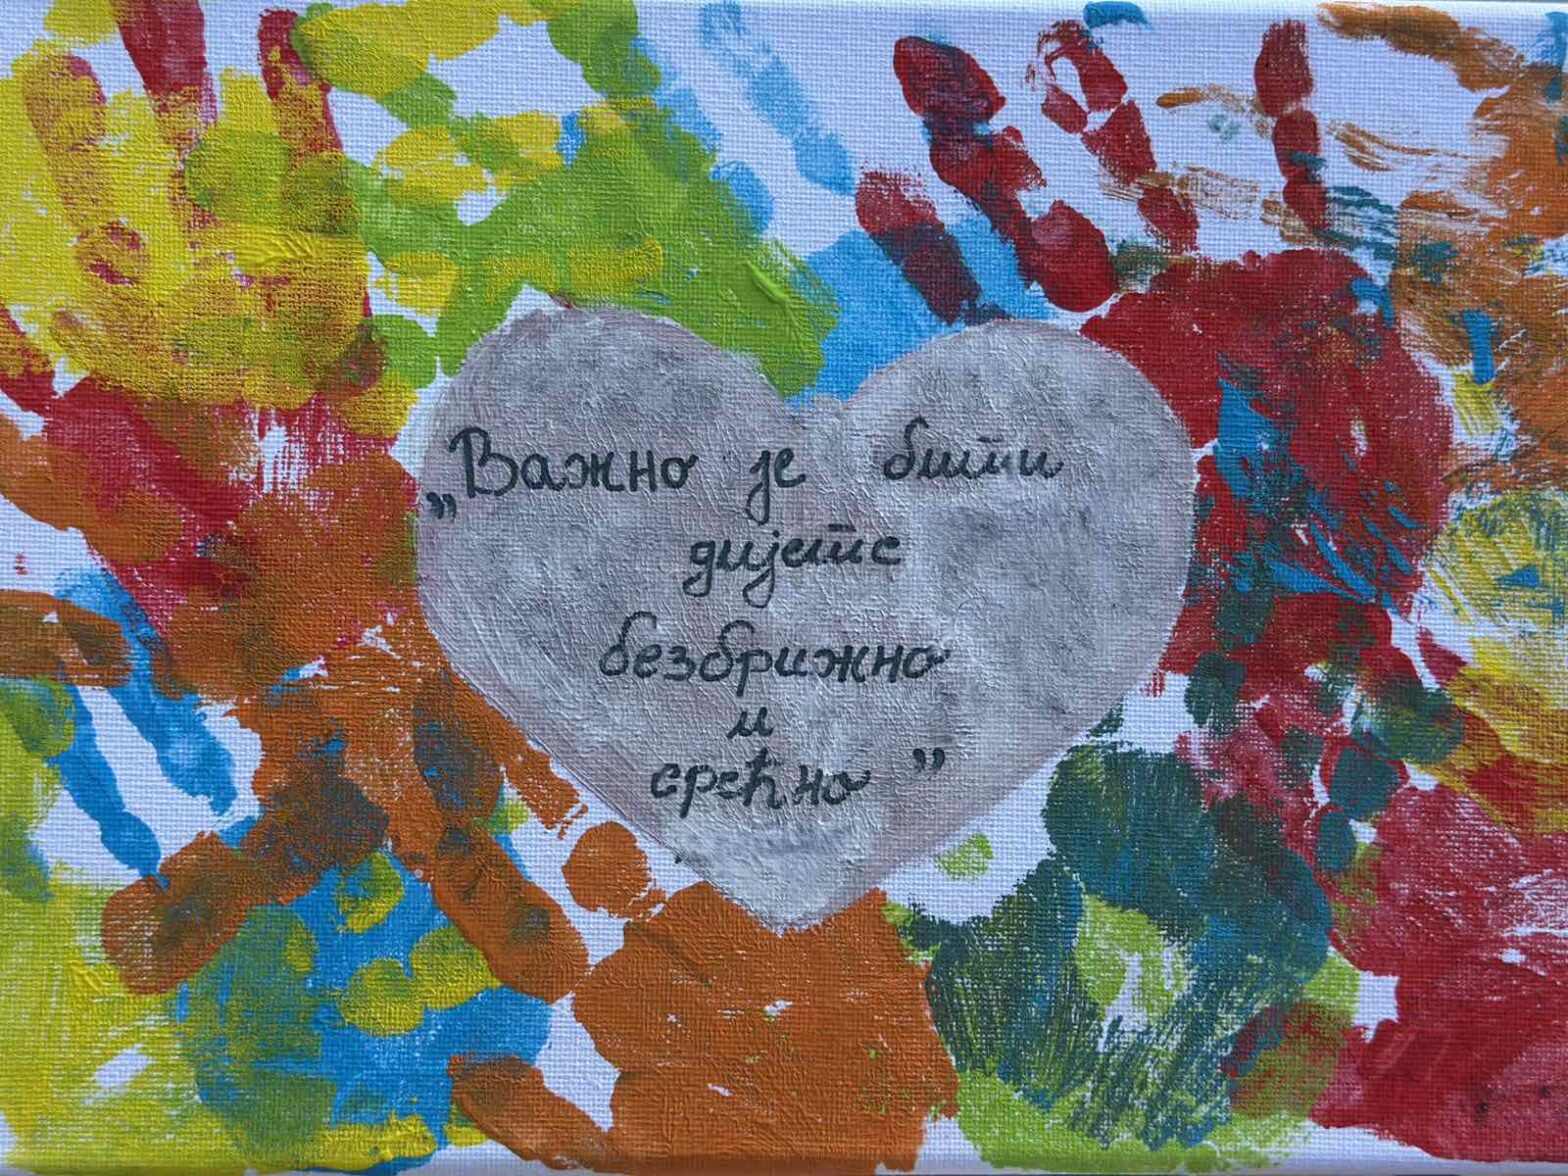 „Важно је бити
дијете
безбрижно
и
срећно”